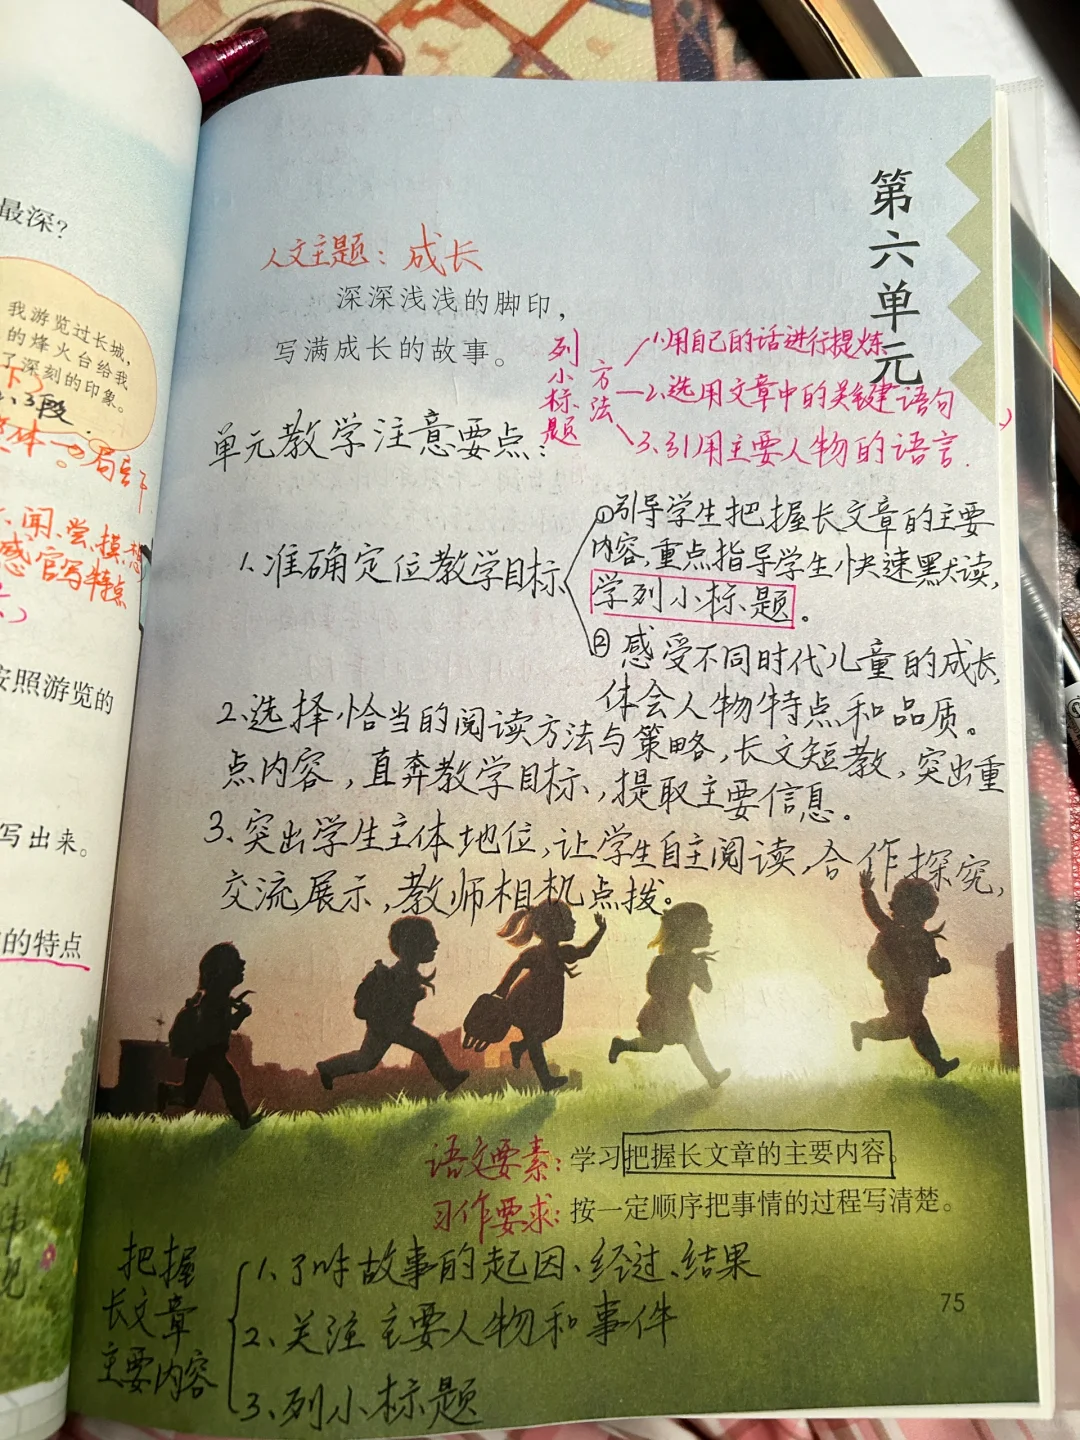 最深?
我游览过长城,
的烽火台给我
了深刻的印象。
安照游览的
写出来。
的特点
第六单元
人文主题:成长
深深浅浅的脚印,
写满成长的故事。
列小标题
方法
1.用自己的话进行提炼
2.选用文章中的关键语句
3.引用主要人物的语言.
单元教学注意要点:
1.准确定位教学目标
①引导学生把握长文章的主要
内容,重点指导学生快速默读,
学列小标题。
②感受不同时代儿童的成长,
体会人物特点和品质。
2.选择恰当的阅读方法与策略,长文短教,突出重
点内容,直奔教学目标,提取主要信息。
3、突出学生主体地位,让学生自主阅读,合作探究,
交流展示,教师相机点拨。
语文要素:学习把握长文章的主要内容。
习作要求:按一定顺序把事情的过程写清楚。
把握
长文章
主要内容
1、了解故事的起因、经过、结果
2、关注主要人物和事件
3、列小标题
75